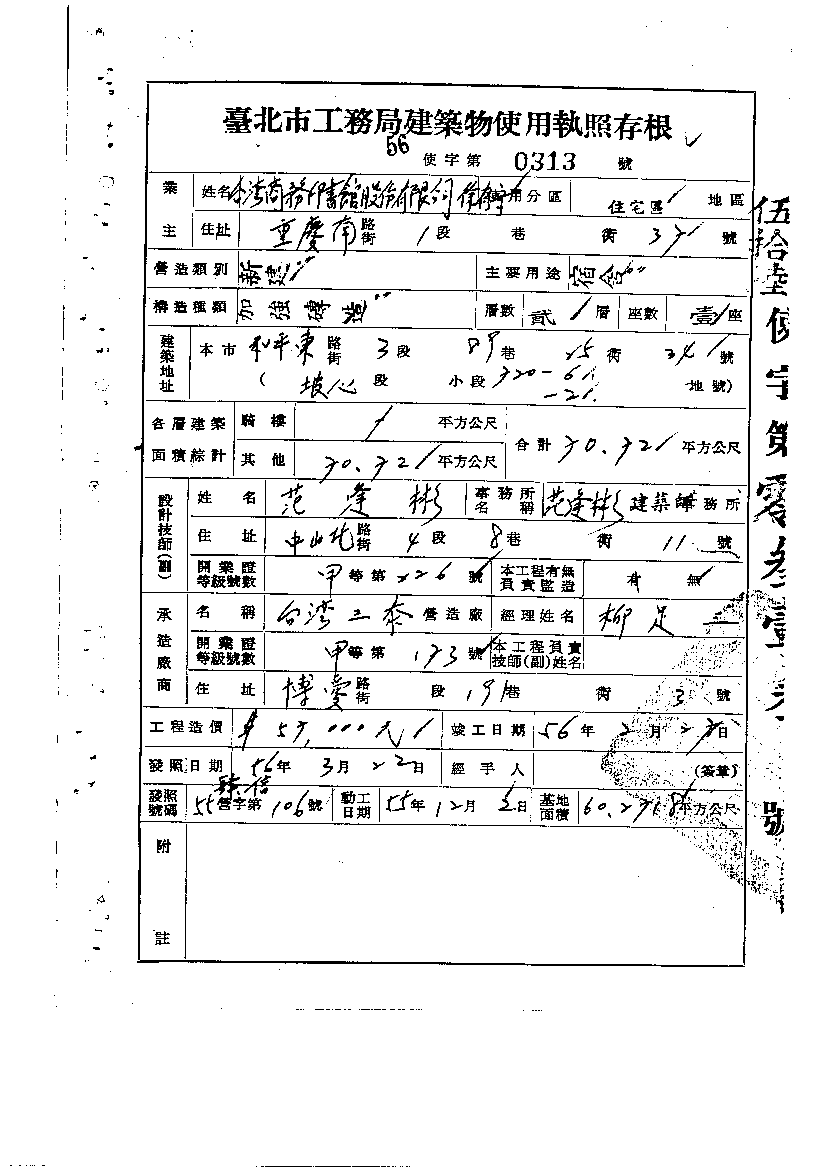 臺北市工務局建築物使用執照存根
56 使字第 0313 號
業主 姓名 台湾商務印書館股份有限公司 使用分區 住宅區 地區
住址 重慶南 路街 1段 巷 街 37 號
營造類別 新建 主要用途 宿舍
構造種類 加強磚造 層數 貳 層 座數 壹 座
建築地址 本市 和平東 路街 3段 89巷 街 號
( 坡心 段 小段 320-61 地號)
-21
各層建築面積綜計 騎樓 平方公尺 合計 70.72 平方公尺
其他 70.72 平方公尺
設計技師(副) 姓名 范逢彬 事務所名稱 范逢彬建築師事務所
住址 中山北 路街 4段 8巷 街 11 號
開業證等級號數 甲等第226號 本工程有無負責監造 有 無
承造廠商 名稱 台湾三泰營造廠 經理姓名 柳足
開業證等級號數 甲等第173號 本工程負責技師(副)姓名
住址 博愛 路街 段 19巷 街 3 號
工程造價 57,000元 竣工日期 56年2月27日
發照日期 56年3月22日 經手人 (簽章)
發照號碼 55營字第106號 動工日期 55年12月 日 基地面積 平方公尺
附註
伍拾陸使字第零叁壹叁號